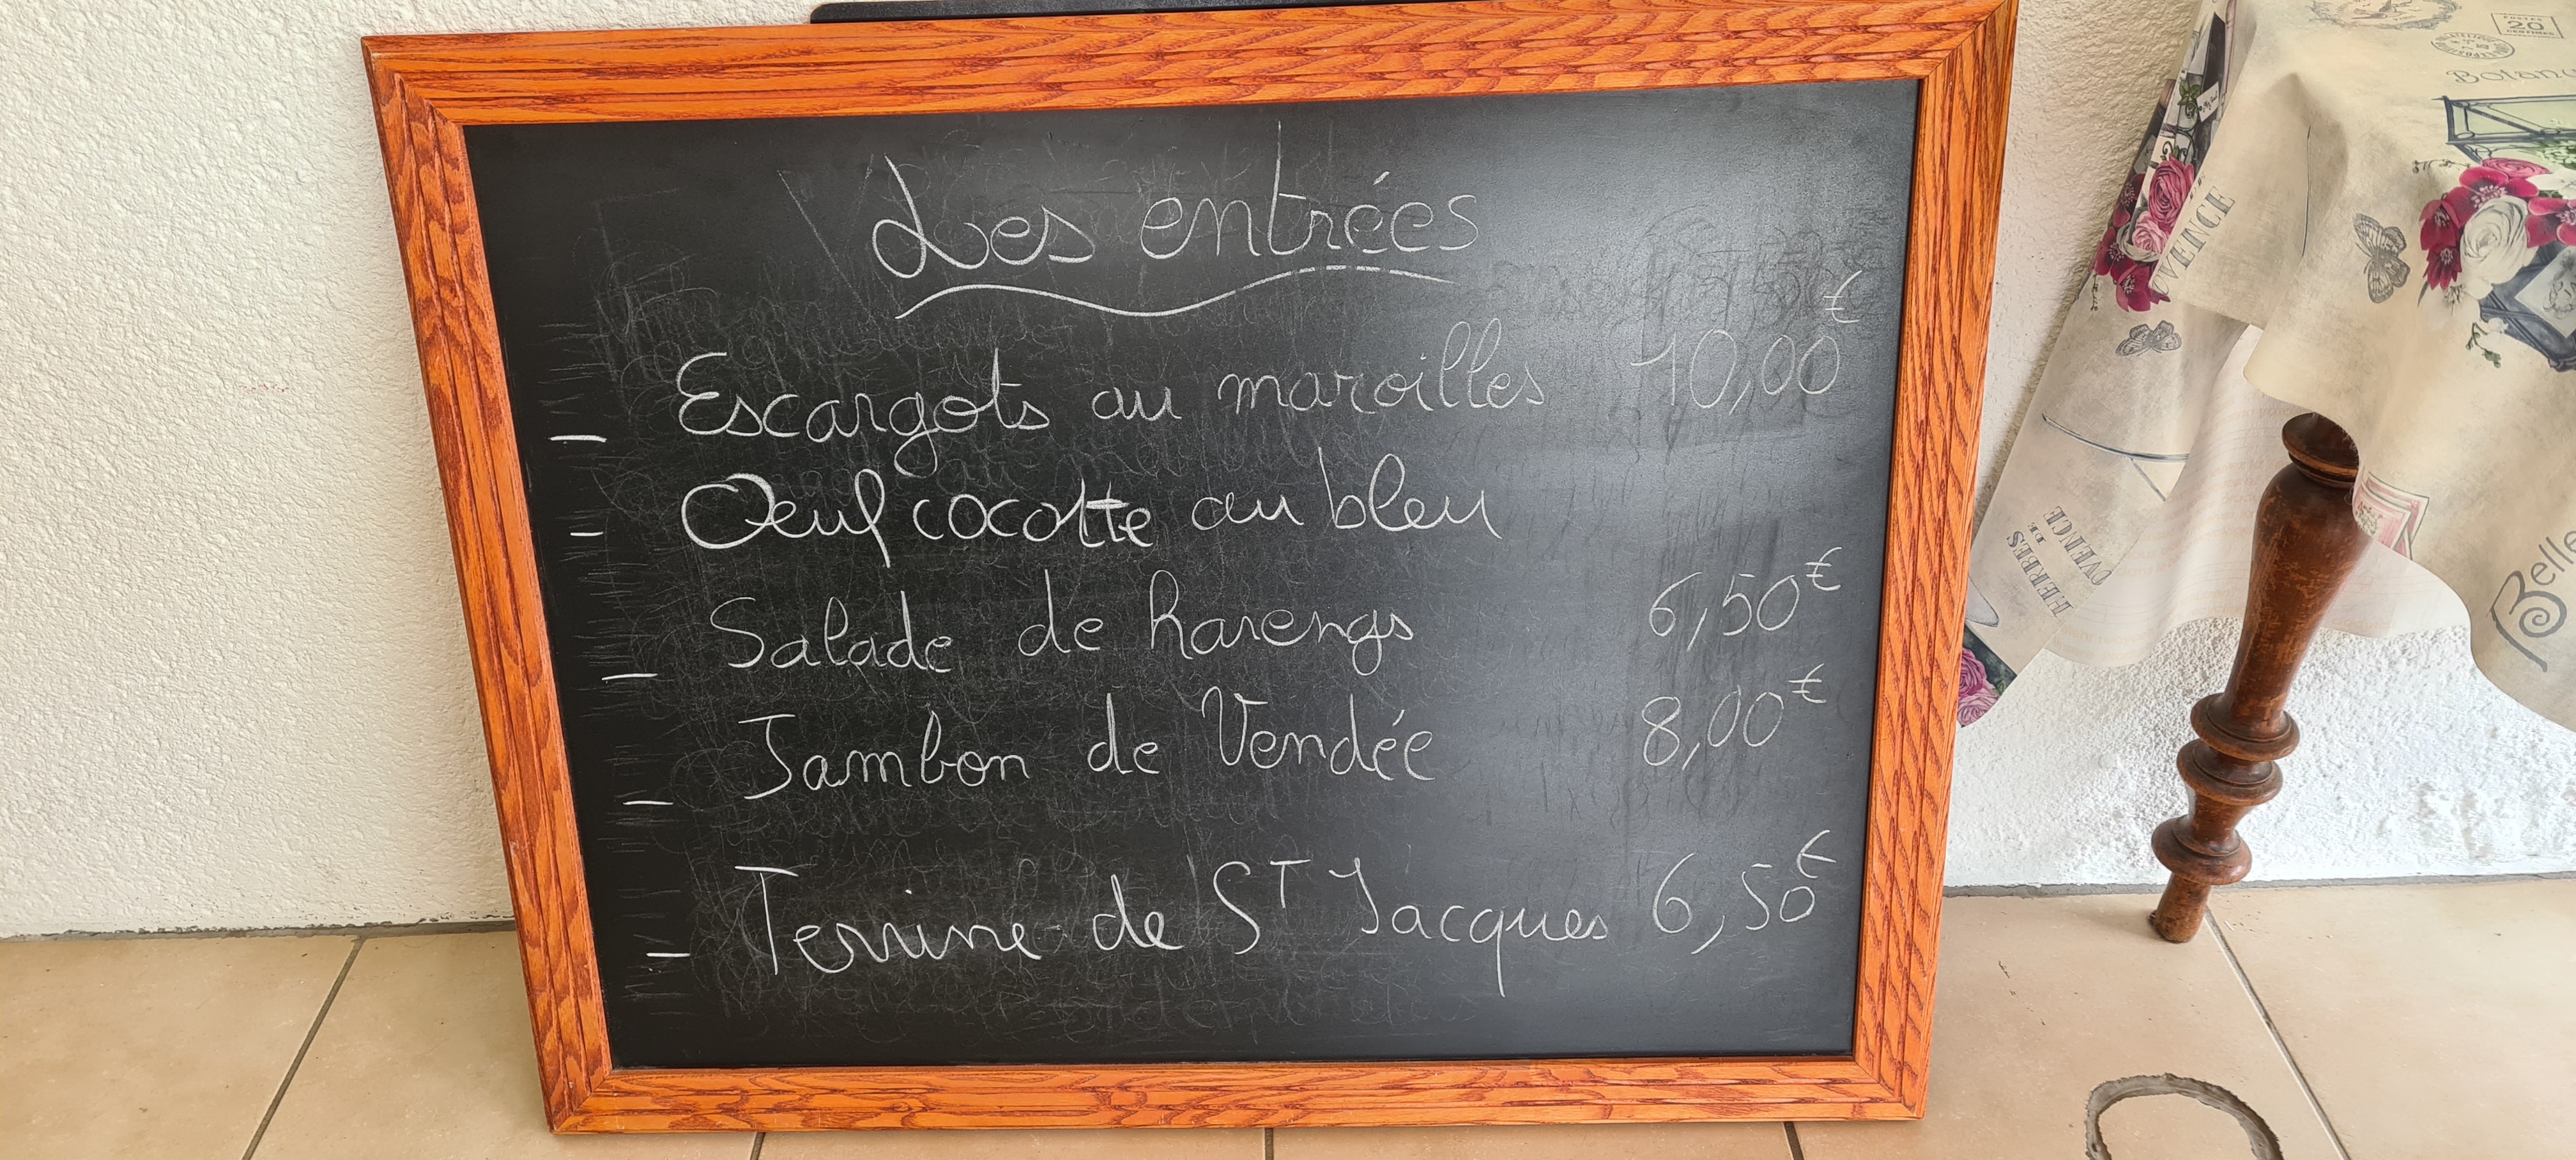 Les entrées
Escargots au maroilles 10,00€
Œuf cocotte au bleu
Salade de harengs 6,50€
Jambon de Vendée 8,00€
Terrine de ST Jacques 6,50€
POSTES
20
CENTIMES
Botan
VENCE
HERBES
DE
OVENCE
Belle